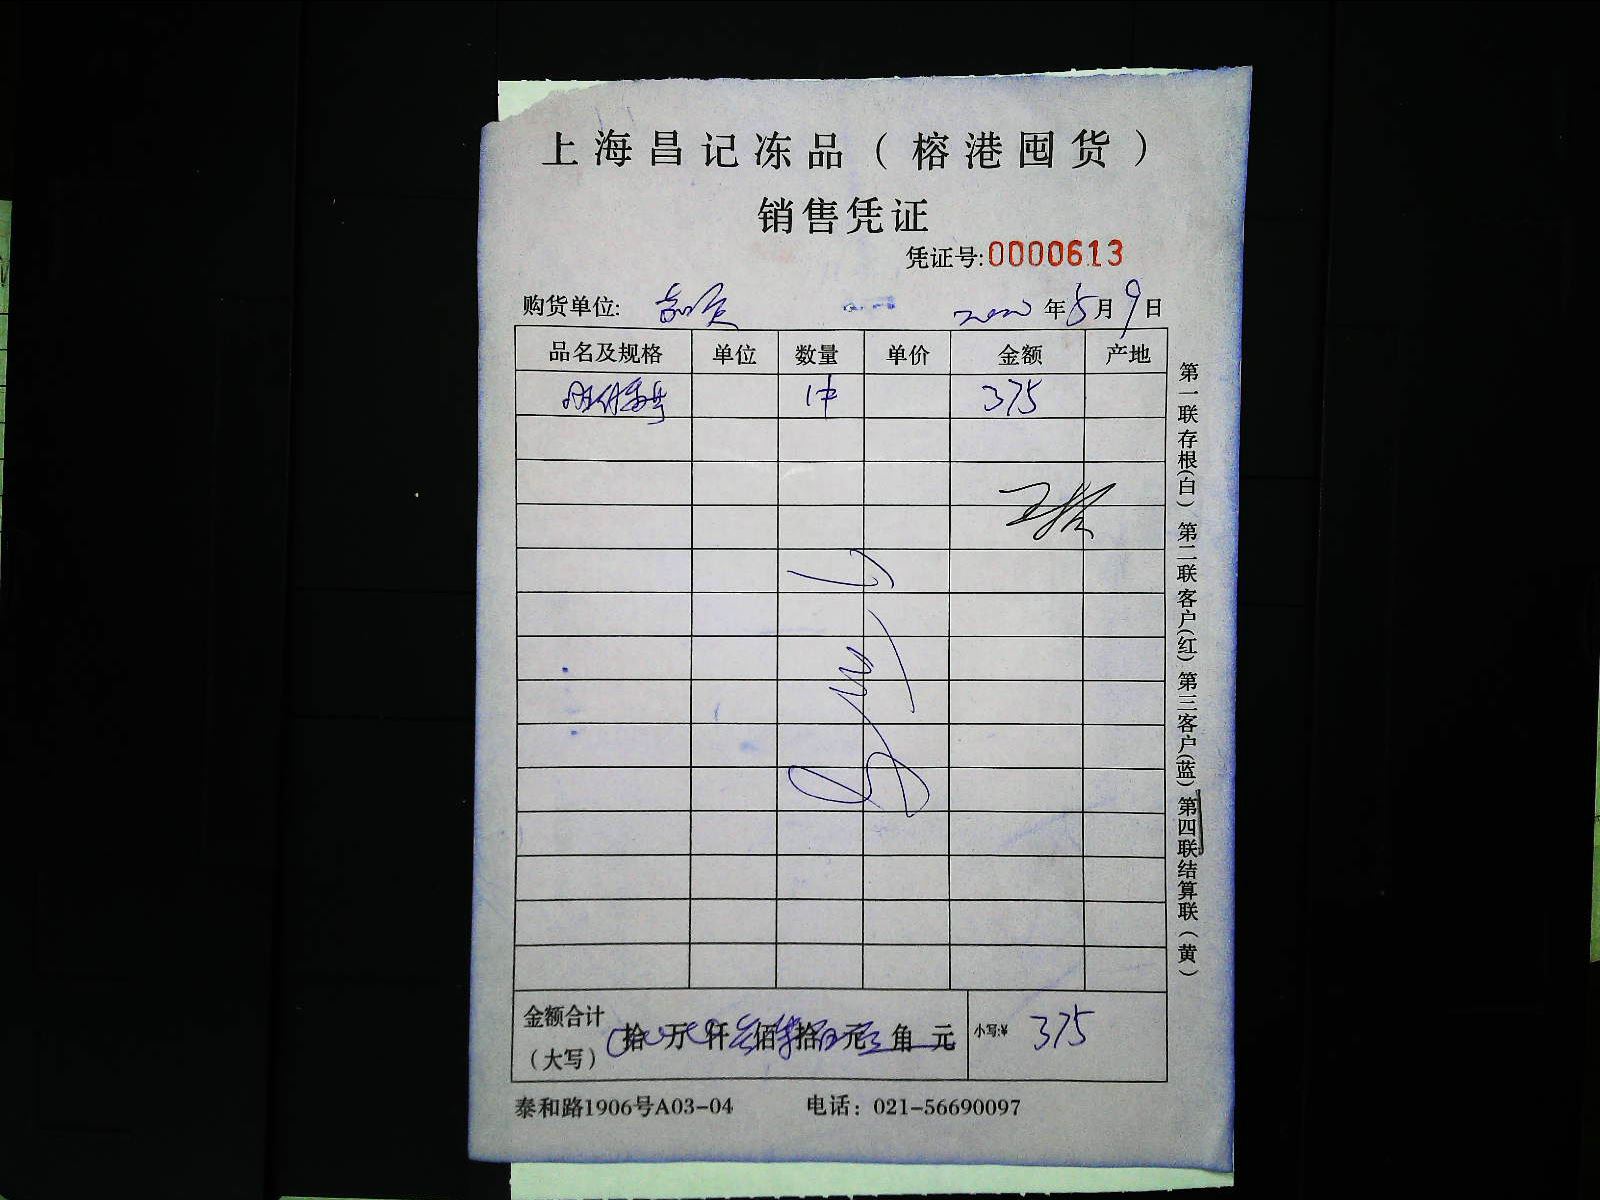 上海昌记冻品（榕港囤货）
销售凭证
凭证号:0000613
购货单位: 年5月9日
品名及规格 单位 数量 单价 金额 产地
1件 375
第一联存根(白) 第二联客户(红) 第三客户(蓝) 第四联结算联(黄)
金额合计（大写） 拾 万 仟 佰 拾 元 角 元 小写:¥ 375
泰和路1906号A03-04 电话：021-56690097